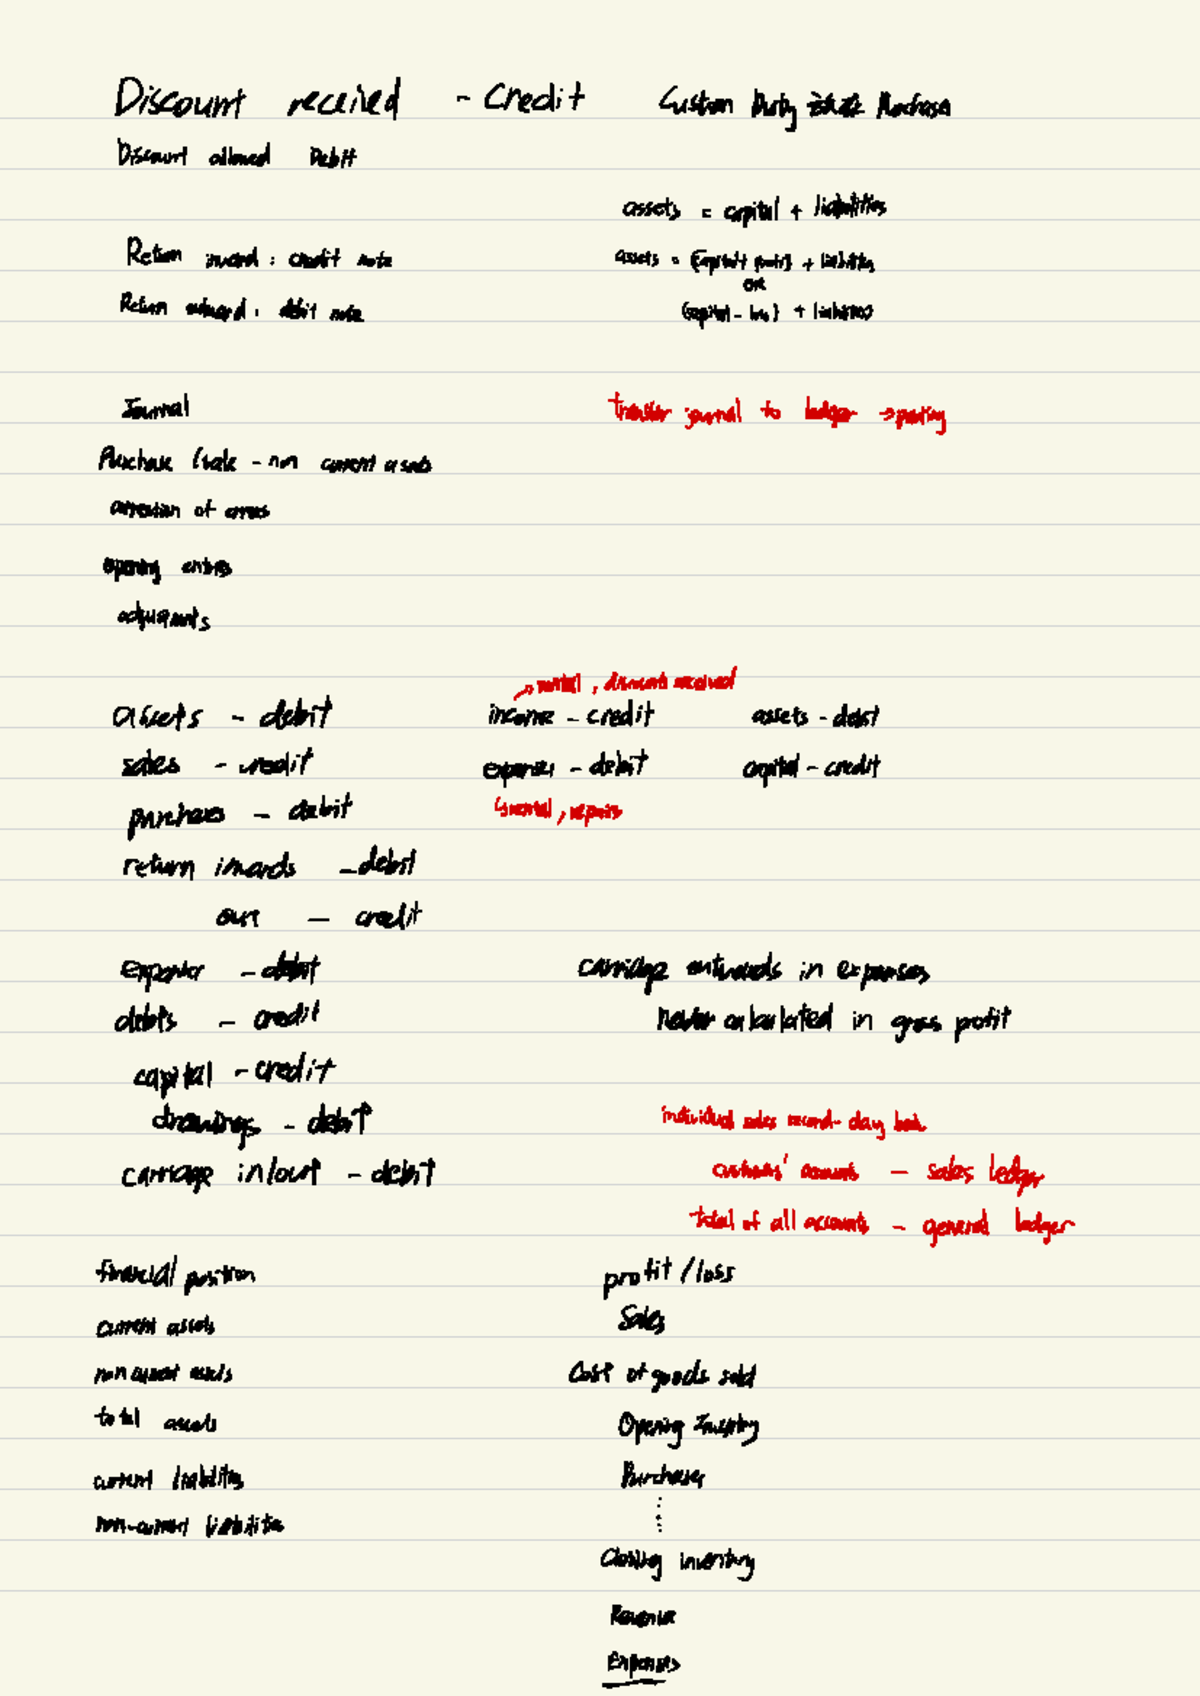 Discount received - Credit
Custom Duty Purchases
Discount allowed Debit
assets = capital + liabilities
Return inward : credit note
assets = (capital + profit) + liabilities
OR
Return outward : debit note
(capital - loss) + liabilities
Journal
transfer journal to ledger → posting
Purchase / sale - non current assets
correction of errors
opening entries
adjustments
rental, discount received
assets - debit
income - credit
assets - debit
sales - credit
expenses - debit
capital - credit
purchases - debit
rental, repairs
return inwards - debit
out - credit
expenses - debit
carriage outwards in expenses
debts - credit
never calculated in gross profit
capital - credit
drawings - debit
individual sales record - day book
carriage in/out - debit
customers' accounts - sales ledger
total of all accounts - general ledger
financial position
profit / loss
Sales
current assets
non current assets
Cost of goods sold
total assets
Opening Inventory
current liabilities
Purchases
non-current liabilities
Closing inventory
Revenue
Expenses